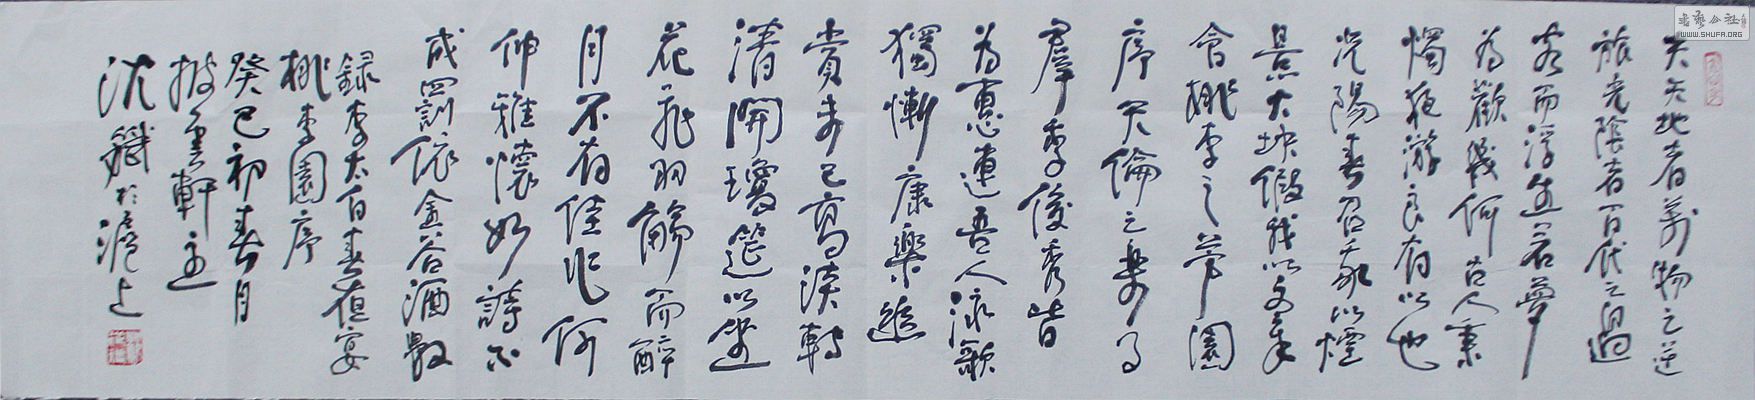 夫天地者萬物之逆
旅光陰者百代之過
客而浮生若夢
為歡幾何古人秉
燭夜游良有以也
況陽春召我以煙
景大塊假我以文章
會桃李之芳園
序天倫之樂事
羣季俊秀皆
為惠連吾人詠歌
獨慚康樂幽
賞未已高談轉
清開瓊筵以坐
花飛羽觴而醉
月不有佳作何
伸雅懷如詩不
成罰依金谷酒數
錄李太白春夜宴
桃李園序
癸巳初春月
披雲軒主
沈 於滬上
書藝公社
WWW.SHUFA.ORG